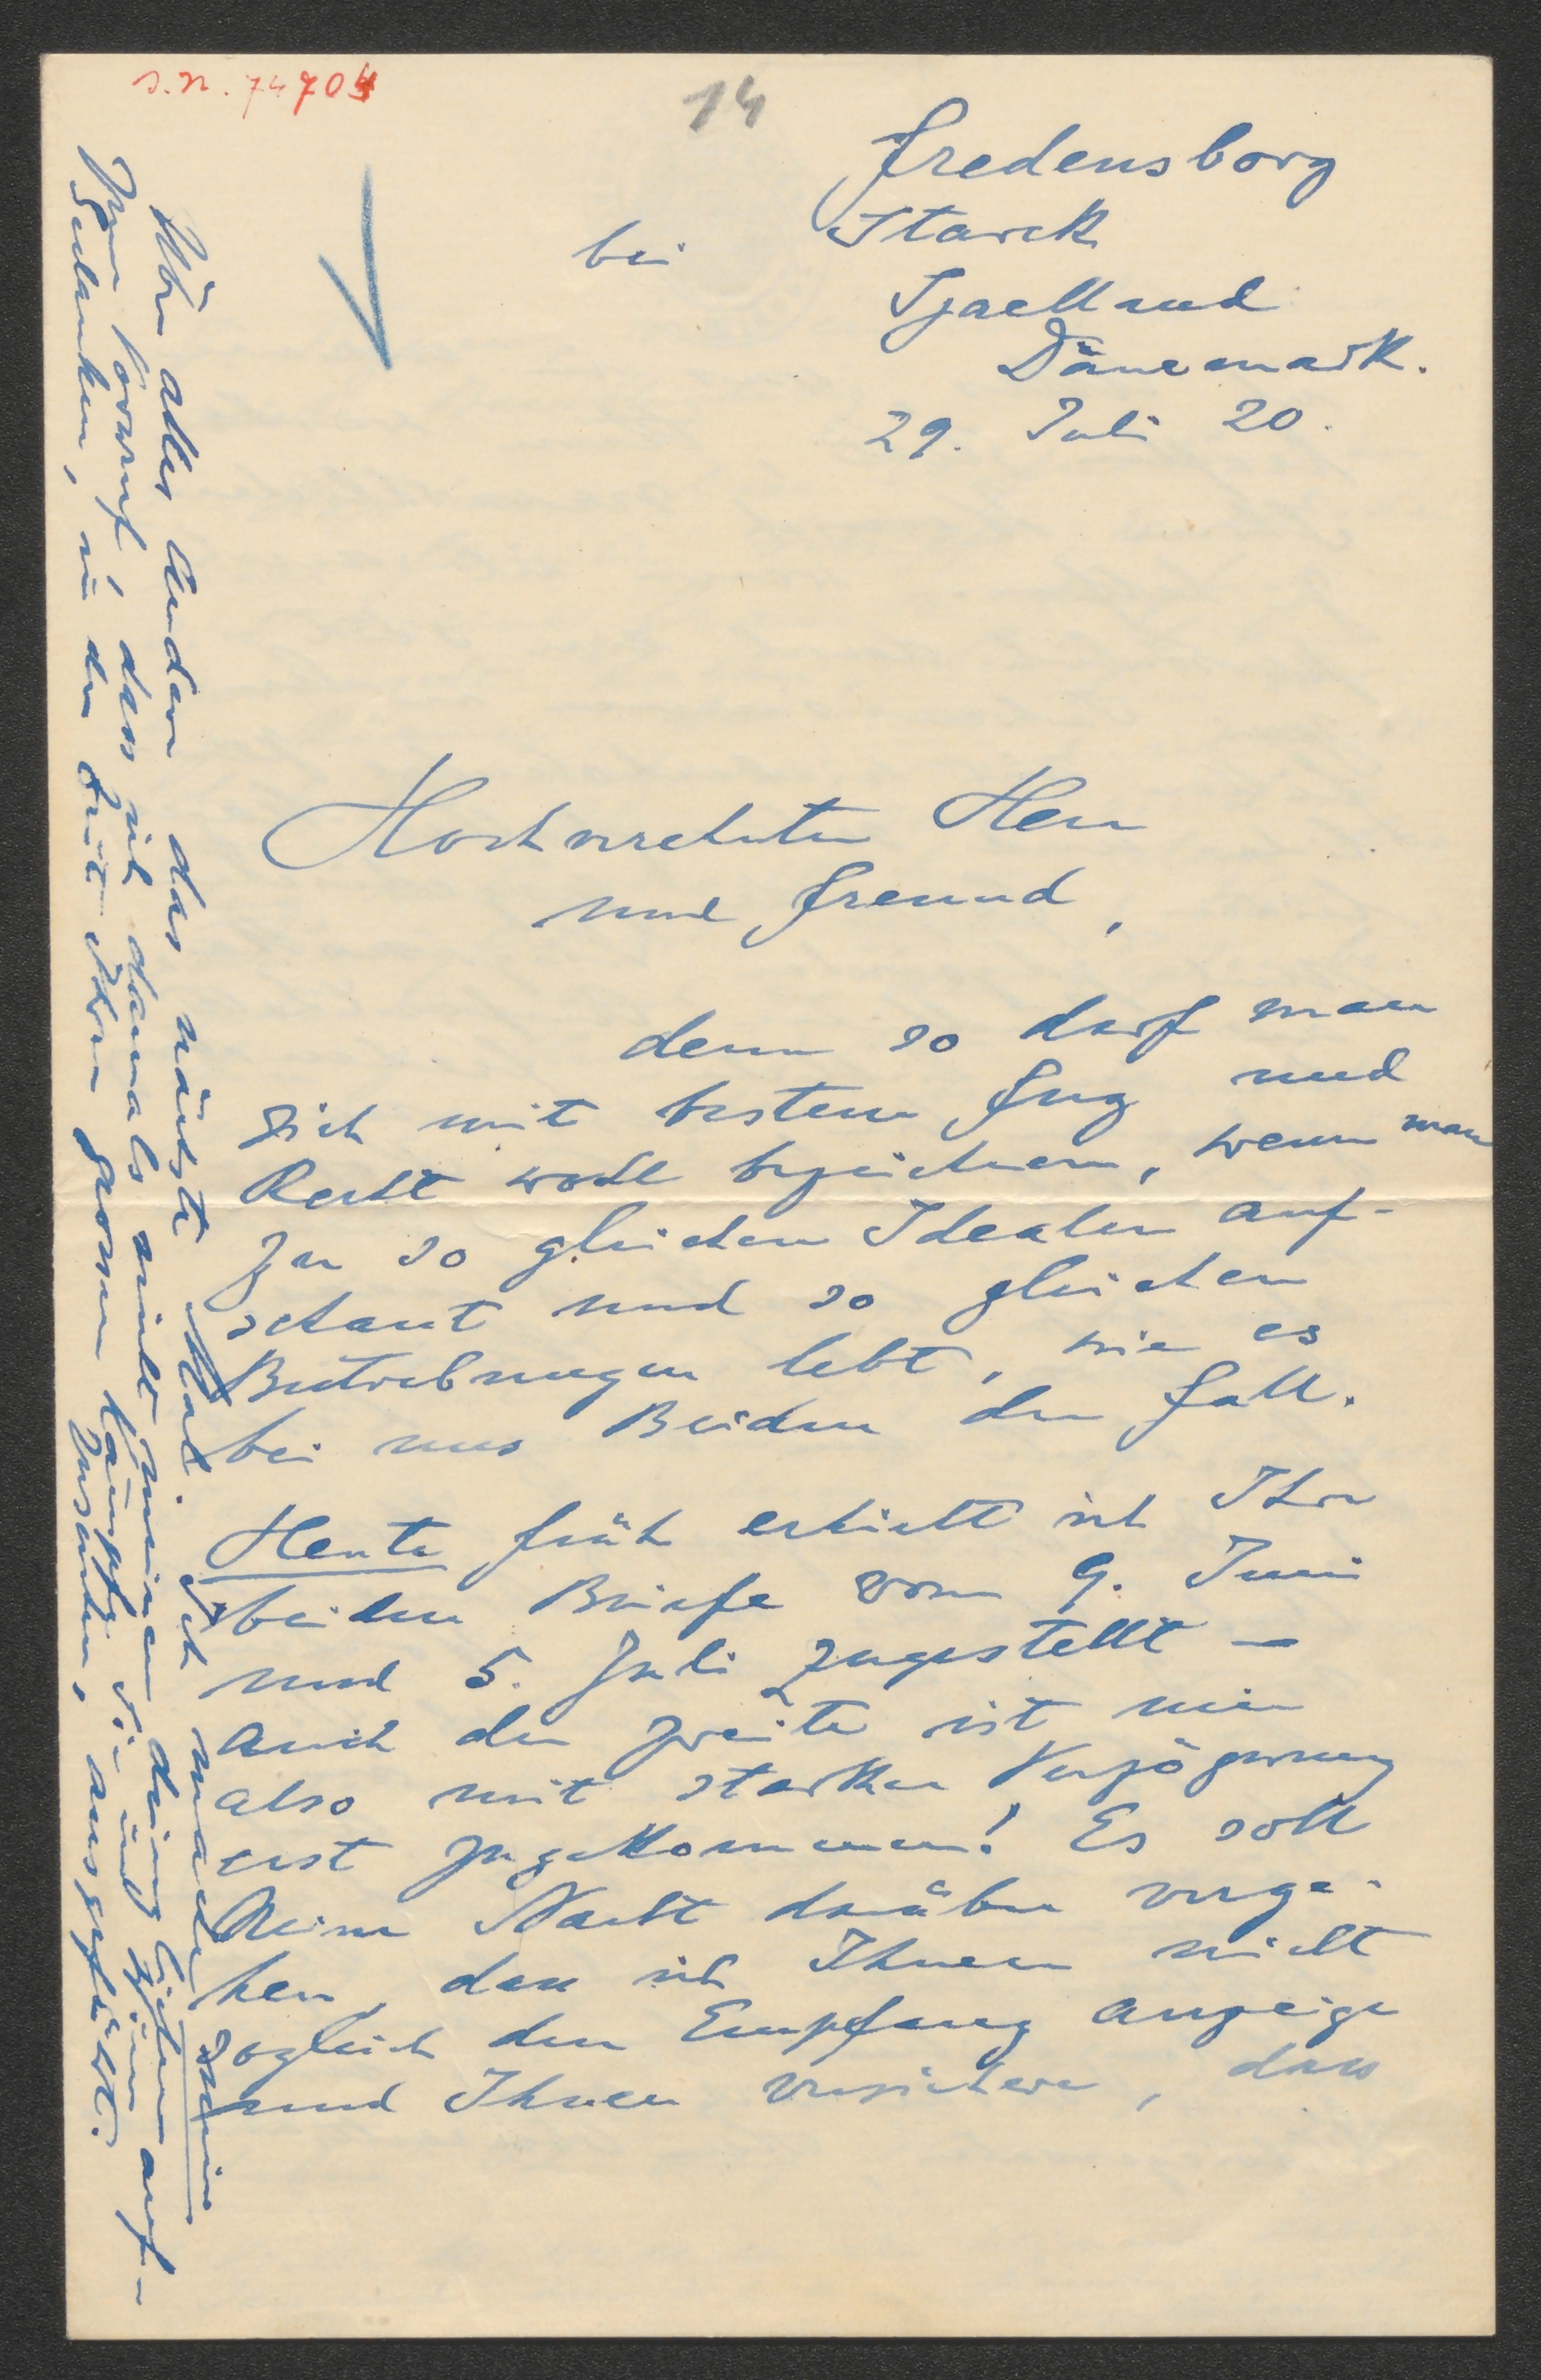 I.N. 74704
14
Fredensborg
bei Starck
Sjaelland
Dänemark.
29. Juli 20.
Hochverehrter Herr
und Freund,
denn so darf man
sich mit bestem Fug und
Recht wohl bezeichnen, wenn man
zu so gleichen Idealen auf-
schaut und so gleichen
Bestrebungen lebt, wie es
bei uns Beiden der Fall.
Heute früh erhielt ich Ihre
beiden Briefe vom 9. Juni
und 5. Juli zugestellt —
auch der zweite ist mir
also mit starker Verzögerung
erst zugekommen! Es soll
keine Nacht darüber verge-
hen, dass ich Ihnen nicht
sogleich den Empfang anzeige
und Ihnen versichere, dass
Über alles Andere das nächste Mal. Ich mache
mir Vorwurf, dass ich damals nicht meinen
Gedanken, in der Zeit Ihrer grossen Kämpfe
ausgeführt.